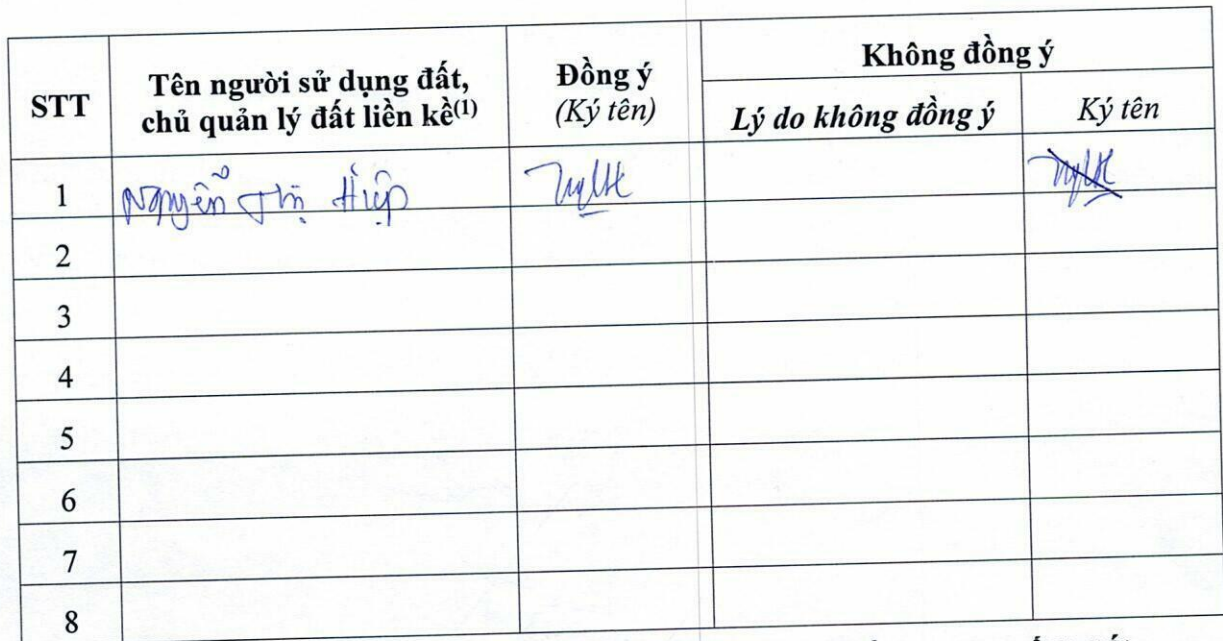 STT
Tên người sử dụng đất,
chủ quản lý đất liền kề(1)
Đồng ý
(Ký tên)
Không đồng ý
Lý do không đồng ý
Ký tên
1 Nguyễn Thị Hiệp
2
3
4
5
6
7
8